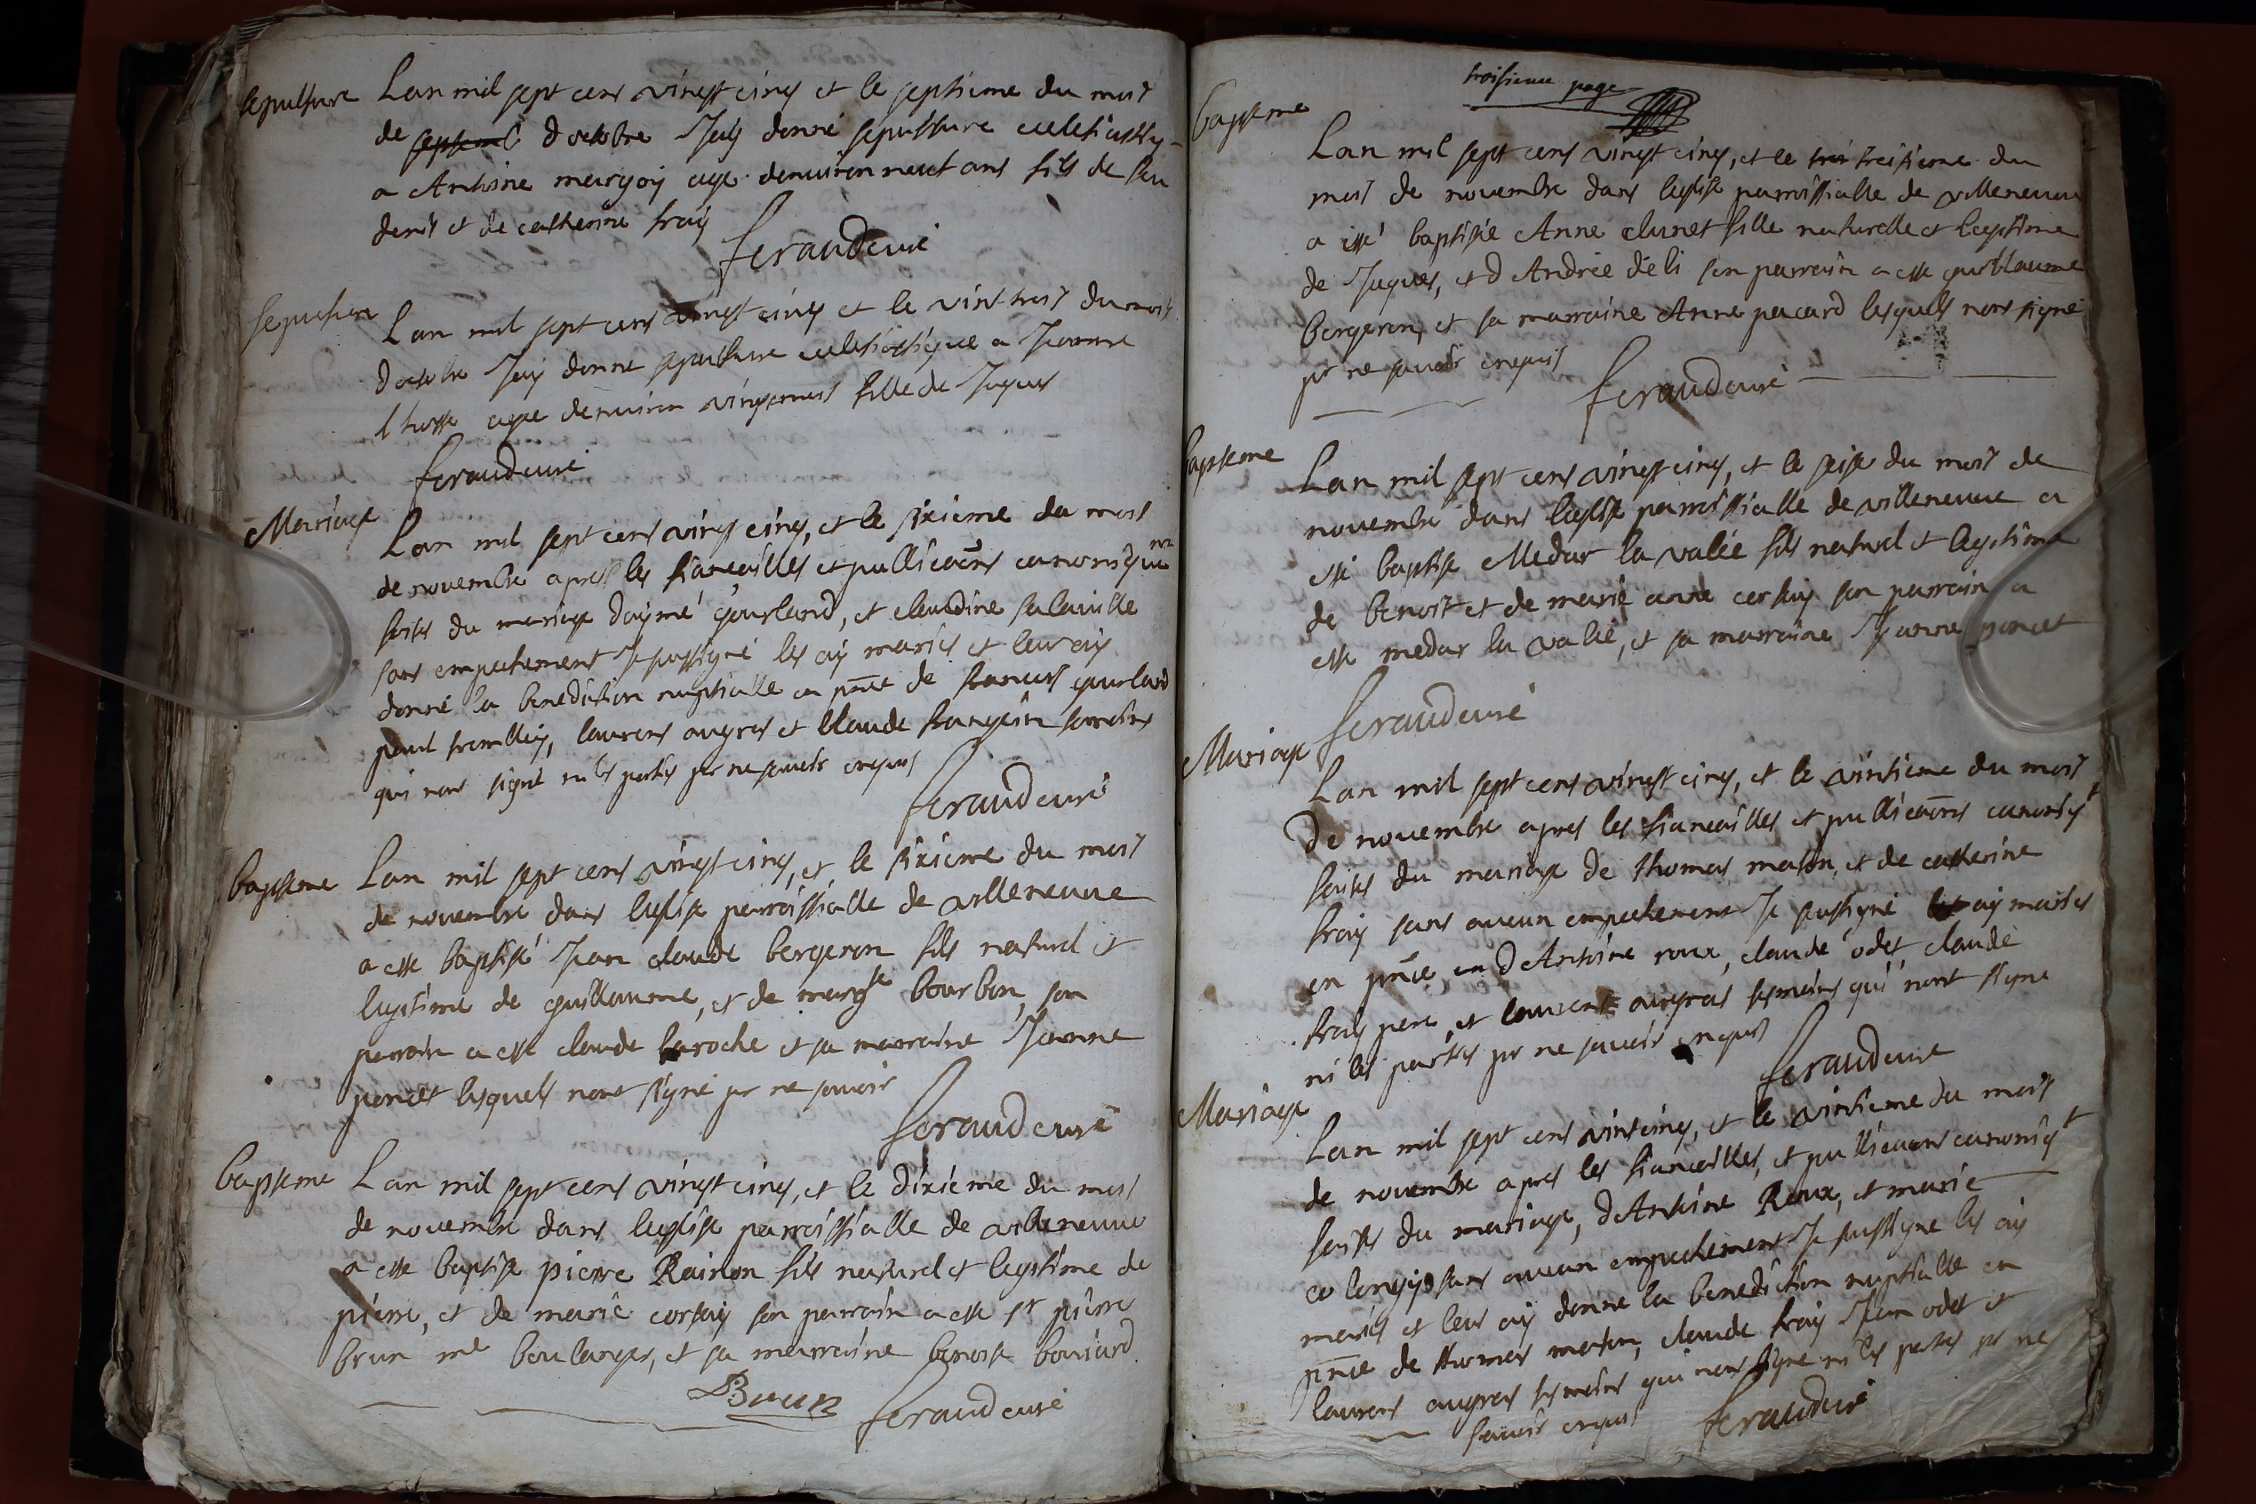 sepulture
Lan mil sept cens vingt cinq et le septieme du mois
de septemb doctobre Jay donné sepulture ecclesiastiq
a Antoine margoy age denuiron neuf ans fils de feu
denis et de catherine fray
feraud curé
sepulture
Lan mil sept cens vingt cinq et le vint trois du mois
doctobre Jay donne sepulture ecclesiastique a Jeanne
agee denuiron fille de Jaques
feraud curé
Mariage
Lan mil sept cens vingt cinq, et le sixieme du mois
de novembre apres les fiancailles et publicaons canoniquem
faites du mariage daymé gourland, et claudine
sans empechement Je sussigné les ay mariés et leur ay
donné la benediction nuptialle en pnce de francois gourland
paul laurens augras et claude temoins
qui nont signé ni les parties pr ne scavoir enquis
feraud curé
baptseme
Lan mil sept cens vingt cinq, et le sixieme du mois
de novembre dans leglise parroissialle de villeneuve
a esse baptisé Jean claude bergeron fils naturel et
legitime de guillaume, et de margte bourbon, son
parrain a esse claude laroche et sa marraine Jeanne
poncet lesquels nont signé pr ne scavoir
feraud curé
baptseme
Lan mil sept cens vingt cinq, et le dixieme du mois
de novembre dans leglise parroissialle de villeneuve
a esse baptisé pierre Rainon fils naturel et legitime de
pierre, et de marie corsay son parrain a esse sr pierre
brun me boulanger, et sa marraine benoite bouiard
Brun feraud curé
troisieme page
baptseme
Lan mil sept cens vingt cinq, et le troi treisieme du
mois de novembre dans leglise parroissialle de villeneuve
a esse baptisée Anne clunet fille naturelle et legitime
de Jaques, et d Andrée deli son parrain a esse guillaume
bergeron, et sa marraine Anne pacard lesquels nont signé
pr ne scavoir enquis
feraud curé
baptseme
Lan mil sept cens vingt cinq, et le seise du mois de
novembre dans leglise parroissialle de villeneuve a
esse baptisé Medar la valée fils naturel et legitime
de benoit et de marie anne son parrain a
esse medar la valée, et sa marraine Jeanne poncet
feraud curé
Mariage
Lan mil sept cens vingt cinq, et le vintieme du mois
de novembre apres les fiancailles et publicaons canoniqt
faites du mariage de thomas maton, et de catherine
fray sans aucun empechement Je sussigné les ay mariés
en pnce en d Antoine roux, claude odet claude
fray pere, et laurens augras temoins qui nont signé
ni les parties pr ne scavoir enquis
feraud curé
Mariage
Lan mil sept cens vint cinq, et le vintieme du mois
de novembre apres les fiancailles, et publicaons canoniqt
faites du mariage, d Antoine Roux, et marie
sans aucun empechement Je sussigne les ay
mariés et leur ay donne la benediction nuptialle en
pnce de thomas maton, claude fray Jean odet et
laurens augras temoins qui nont signe ni les parties pr ne
scavoir enquis
feraud curé